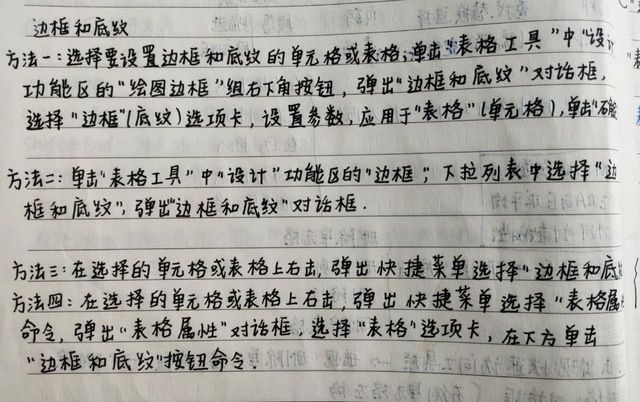 边框和底纹
方法一:选择要设置边框和底纹的单元格或表格,单击"表格工具"中"设计
功能区的"绘图边框"组右下角按钮,弹出"边框和底纹"对话框,
选择"边框"(底纹)选项卡,设置参数,应用于"表格"(单元格),单击"
方法二:单击"表格工具"中"设计"功能区的"边框",下拉列表中选择"边
框和底纹",弹出"边框和底纹"对话框.
方法三:在选择的单元格或表格上右击,弹出快捷菜单选择"边框和底纹
方法四:在选择的单元格或表格上右击,弹出快捷菜单选择"表格属
命令,弹出"表格属性"对话框,选择"表格"选项卡,在下方单击
"边框和底纹"按钮命令.